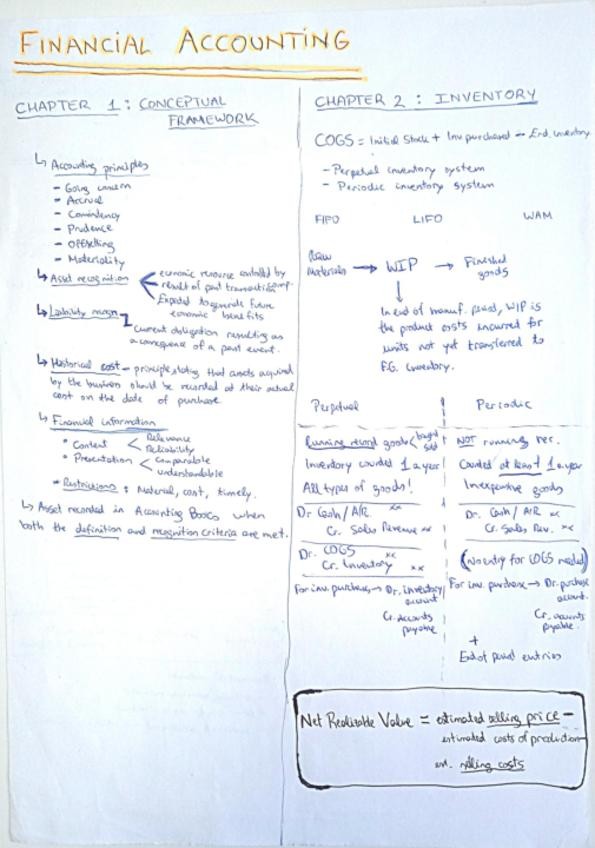 FINANCIAL ACCOUNTING
CHAPTER 1 : CONCEPTUAL
FRAMEWORK
↳ Accounting principles
- Going concern
- Accrual
- Consistency
- Prudence
- Offsetting
- Materiality
↳ Asset recognition
economic resource controlled by
result of past transactions
Expected to generate future
economic benefits
↳ Liability recogn
current obligation resulting as
a consequence of a past event.
↳ Historical cost - principle stating that assets acquired
by the business should be recorded at their actual
cost on the date of purchase
↳ Financial information
• Content < Relevance
Reliability
• Presentation < comparable
understandable
• Restrictions : Material, cost, timely.
↳ Asset recorded in Accounting Books when
both the definition and recognition criteria are met.
CHAPTER 2 : INVENTORY
COGS = Initial Stock + Inv purchased - End. inventory
- Perpetual inventory system
- Periodic inventory system
FIFO LIFO WAM
Raw materials → WIP → Finished goods
In end of manuf. period, WIP is
the product costs incurred for
units not yet transferred to
F.G. inventory.
Perpetual Periodic
Running record goods < bought
sold
Inventory counted 1 a year
All types of goods!
Dr Cash / A/R xx
Cr. Sales Revenue xx
Dr. COGS xx
Cr. Inventory xx
For inv. purchase → Dr. inventory
account
Cr. accounts
payable
NOT running rec.
Counted at least 1 a year
Inexpensive goods
Dr. Cash / A/R xx
Cr. Sales Rev. xx
(No entry for COGS needed)
For inv. purchase → Dr. purchase
account.
Cr. accounts
payable.
+
End of period entries
Net Realizable Value = estimated selling price -
estimated costs of production -
est. selling costs